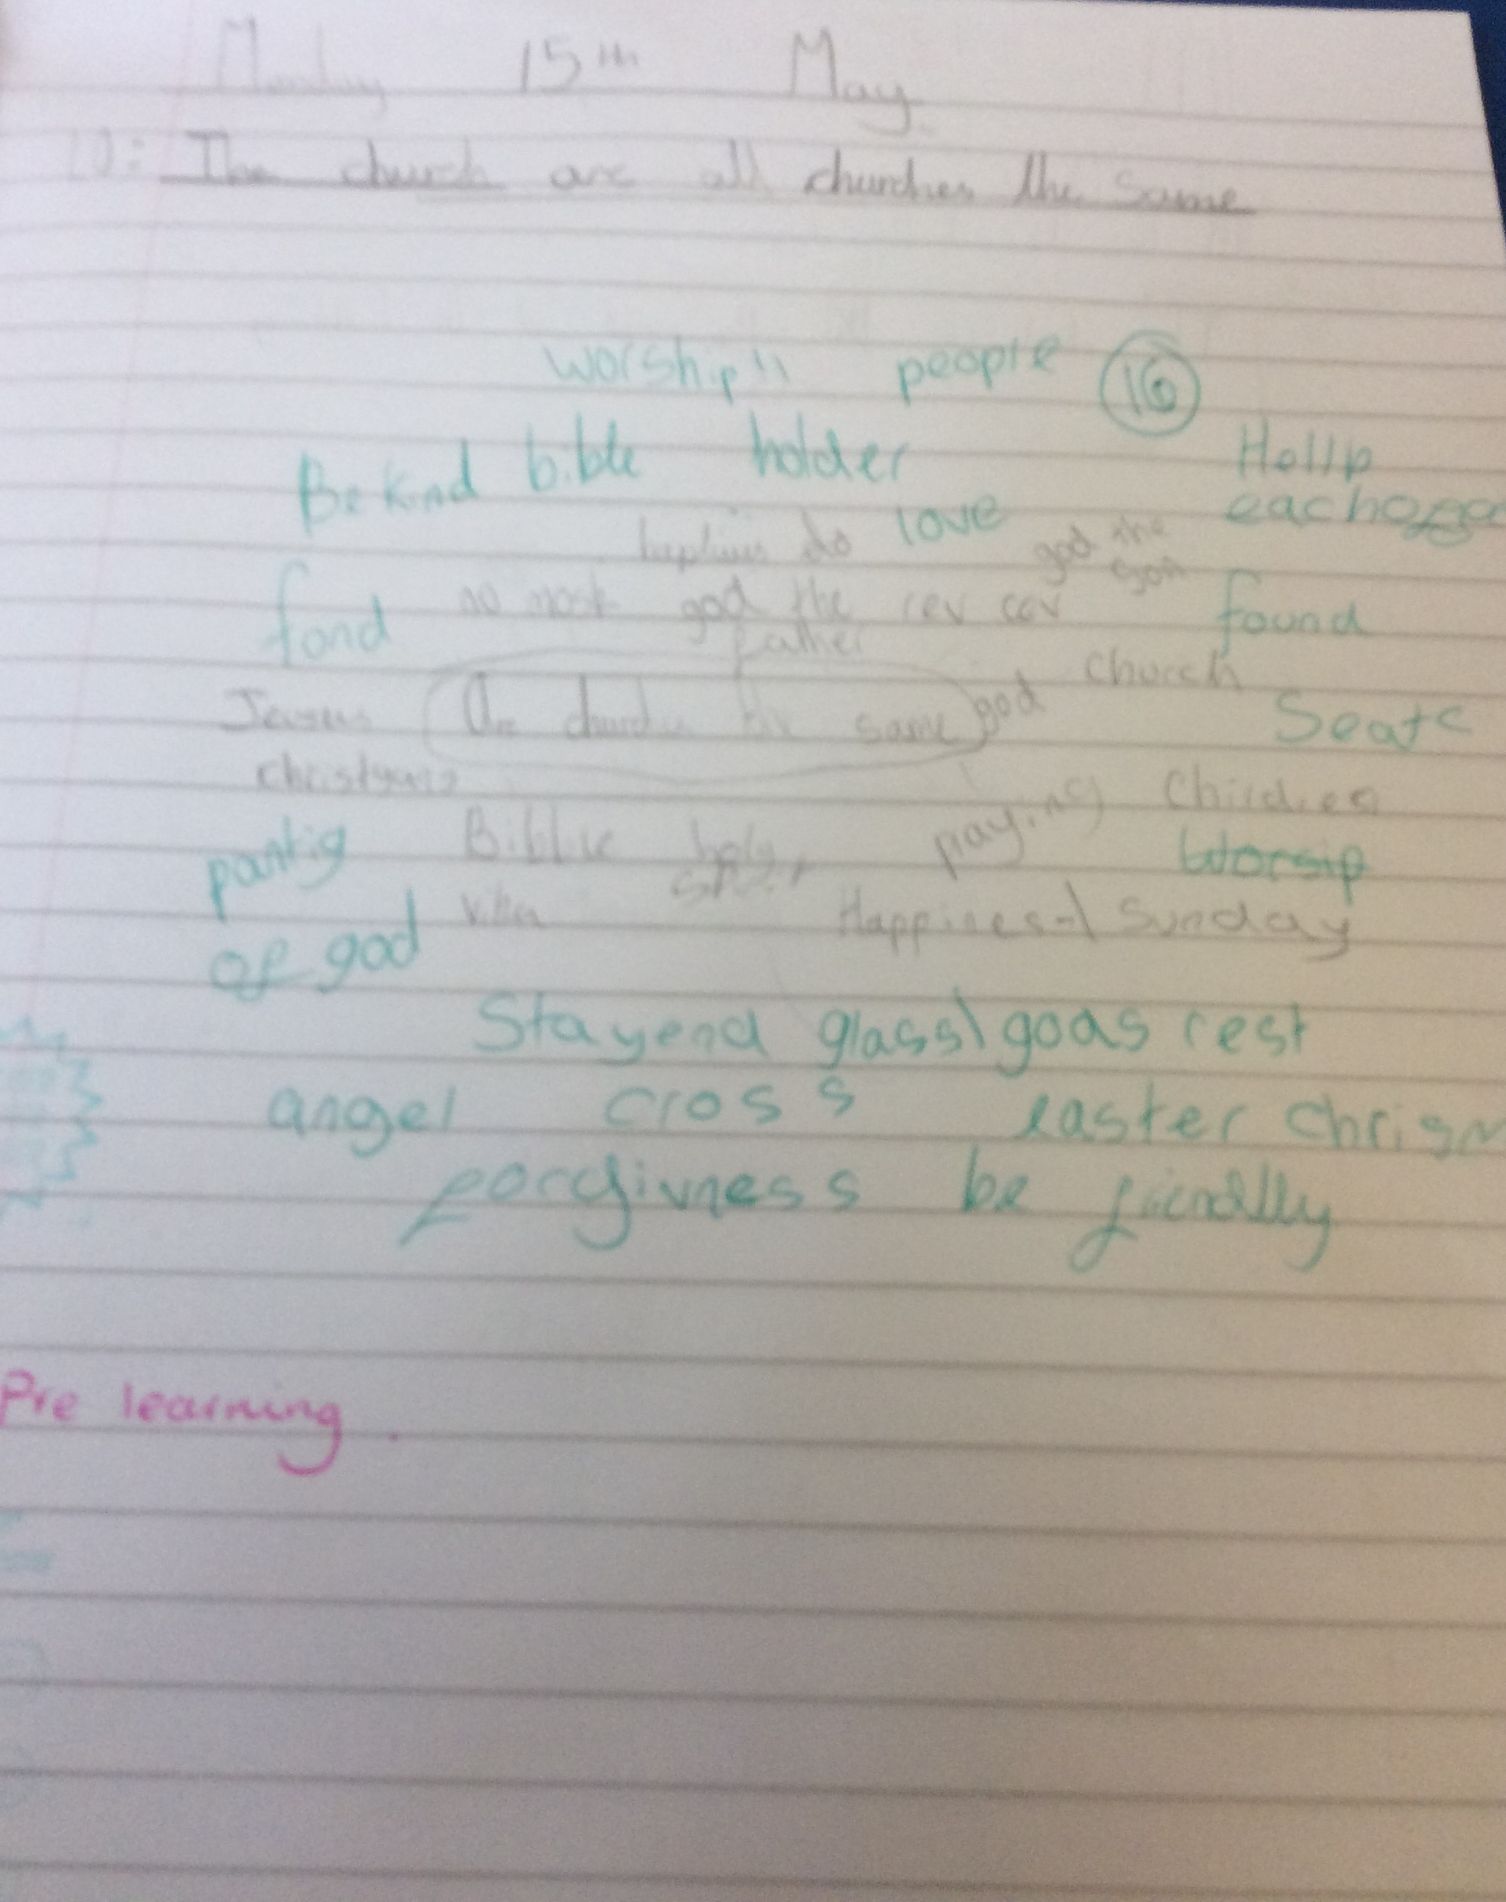 Monday 15th May
LO: The church are all churches the same
worship" people 16
Be kind bible holder Hellp
love eacho
do god the
son
fond god the rev cav found
father
church
Jesus the same god Seats
christyans Childreo
praying
panting Bibble holy Worsip
of god Happines Sunday
Stayend glass goas rest
angel cross easter Chrism
forgivness be friendlly
Pre learning.